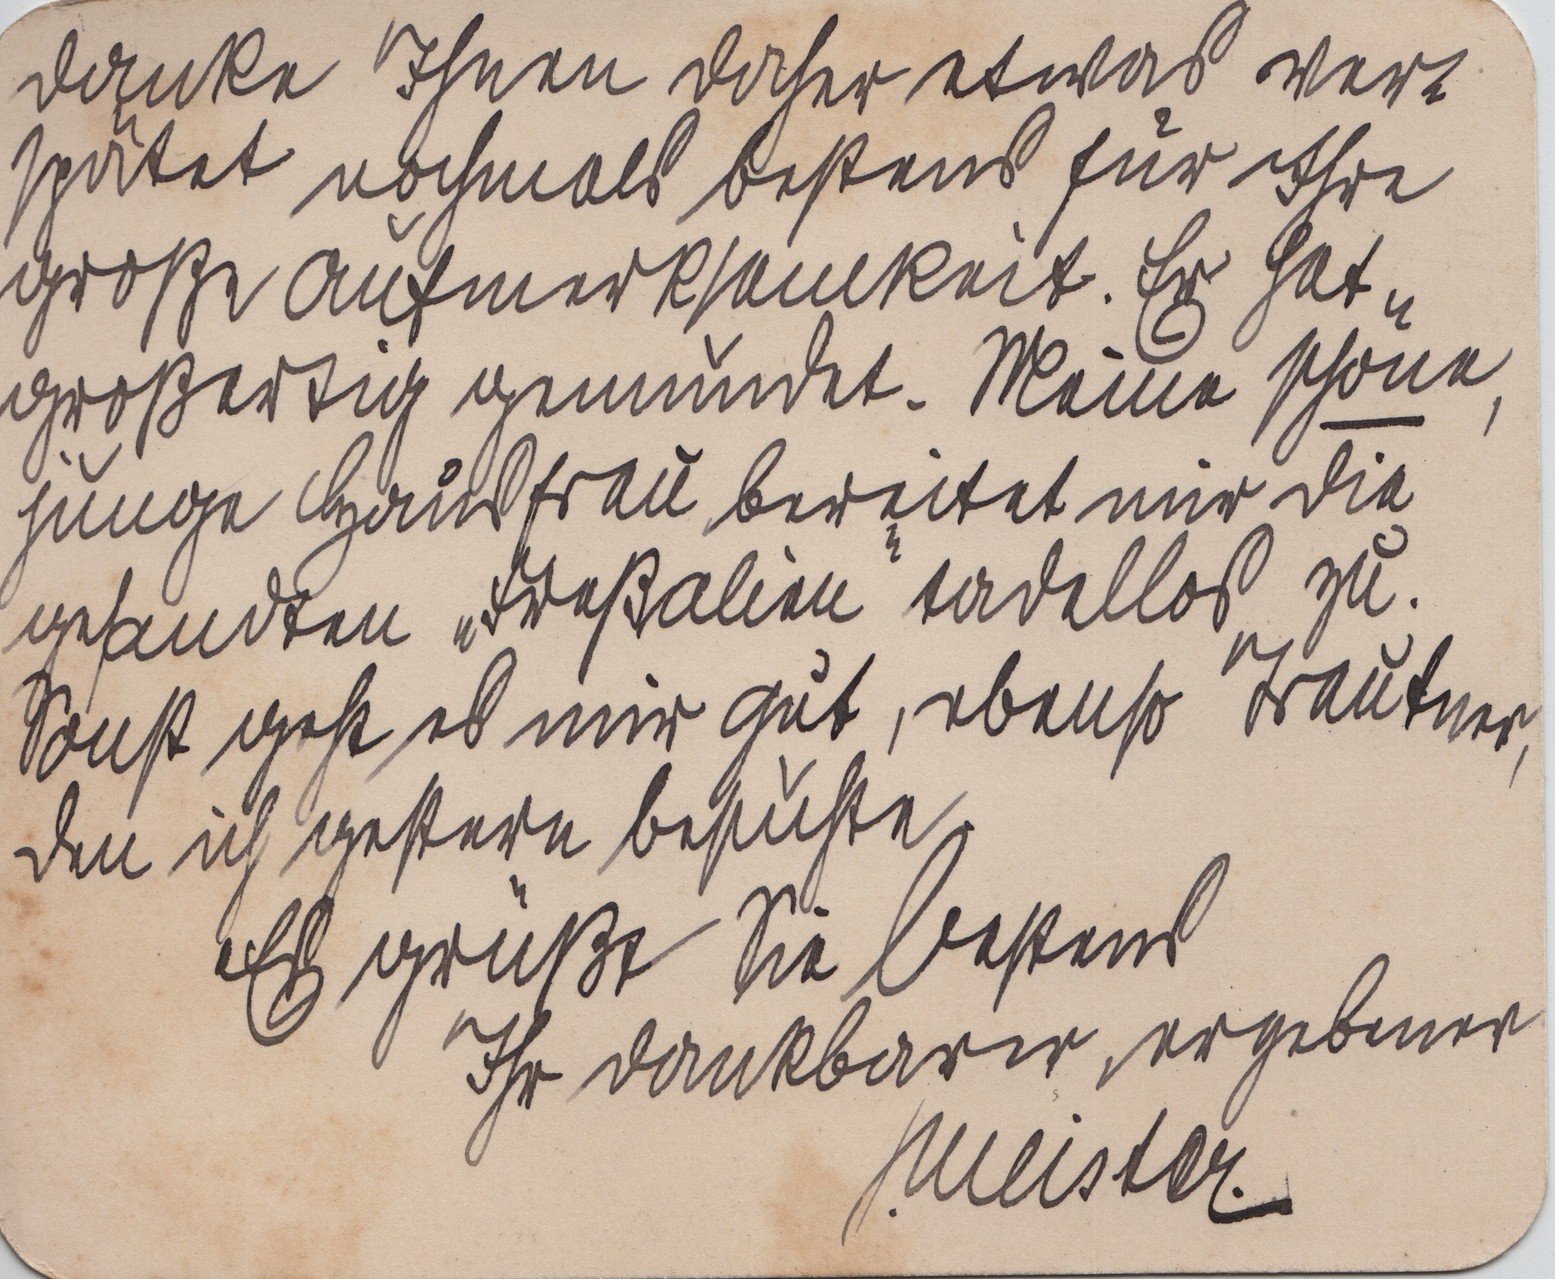 danke Ihnen daher etwas ver-
spätet nochmals bestens für Ihre
große Aufmerksamkeit. Er hat
großartig gemundet. Meine schöne,
junge Hausfrau bereitet mir die
gesandten „Freßalien" tadellos zu.
Sonst geht es mir gut, ebenso Trautner,
den ich gestern besuchte.
Es grüßt Sie bestens
Ihr dankbarer, ergebener
Meister.